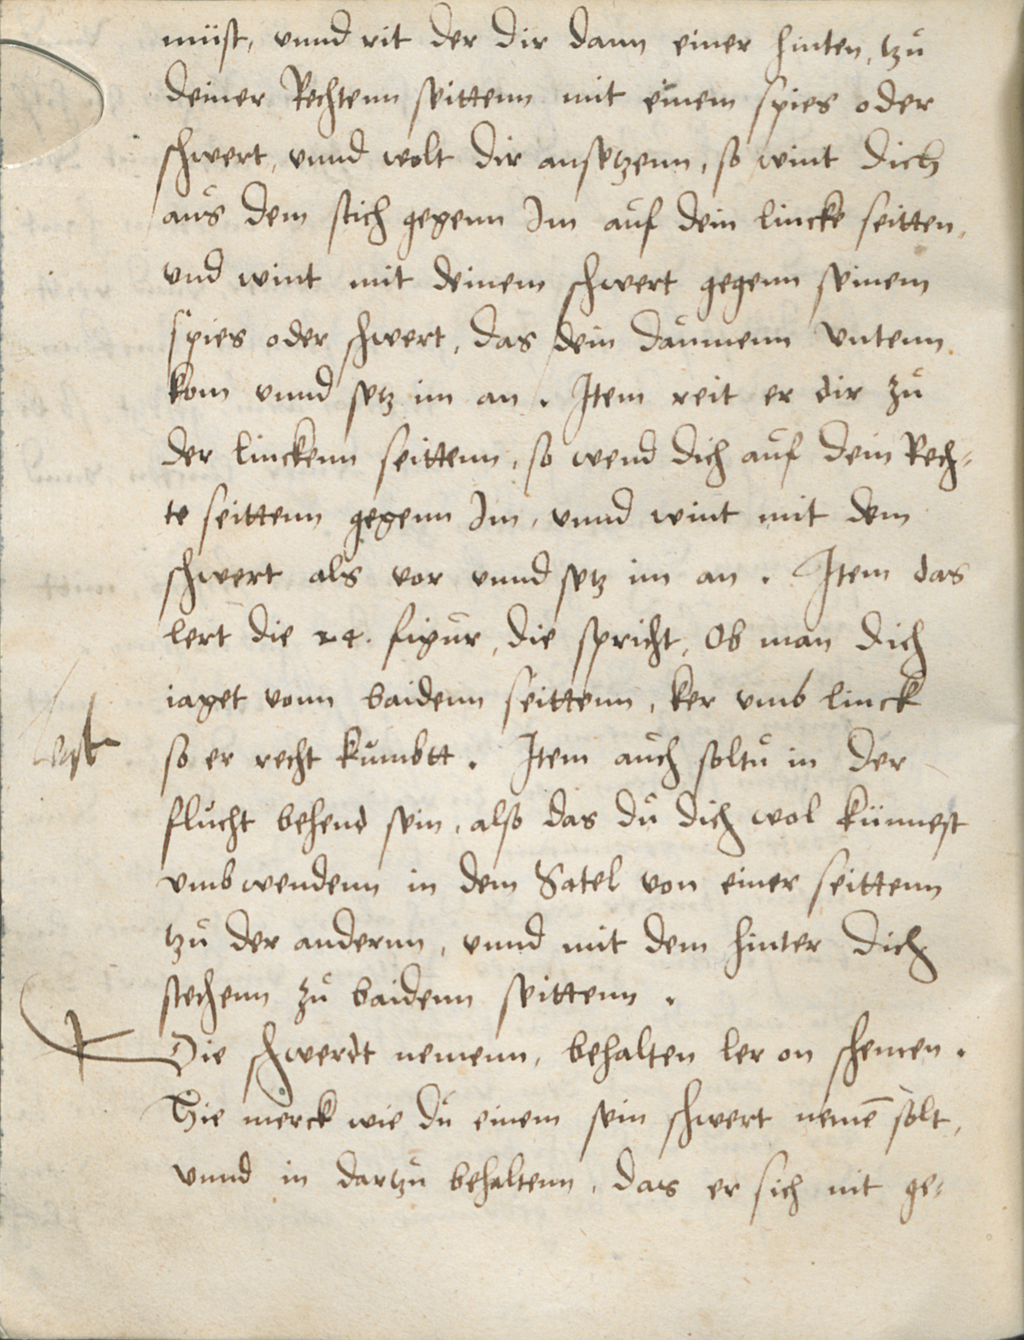 müst, vnnd rit der dir dann einer hinten, tzů
deiner Rechtenn seittenn mit einem spies oder
schwert, vnnd wolt dir ansetzenn, so wint dich
aůs dem stich gegenn Im aůf dein lincke seitten,
vnd wint mit deinem schwert gegenn seinem
spies oder schwert, das dein daůmenn vntenn
kom vnnd setz im an. Item reit er dir zů
der linckenn seittenn, so wend dich aůf dein Rech-
te seittenn gegenn Im, vnnd wint mit dem
schwert als vor vnnd setz im an. Item das
lert die 24. figůr, die spricht, Ob man dich
iaget vonn baidenn seittenn, ker vmb linck
so er recht kůmbtt. Item aůch soltů in der
flůcht behend sein, also das dů dich wol künnest
vmbwendenn in dem Satel von einer seittenn
tzů der andernn, vnnd mit dem hinter dich
stechenn zů baidenn seittenn.
Die schwerdt nemenn, behalten ler on schemen.
Hie merck wie dů einem sein schwert nemē solt,
vnnd in dartzů behaltenn, das er sich nit ge-